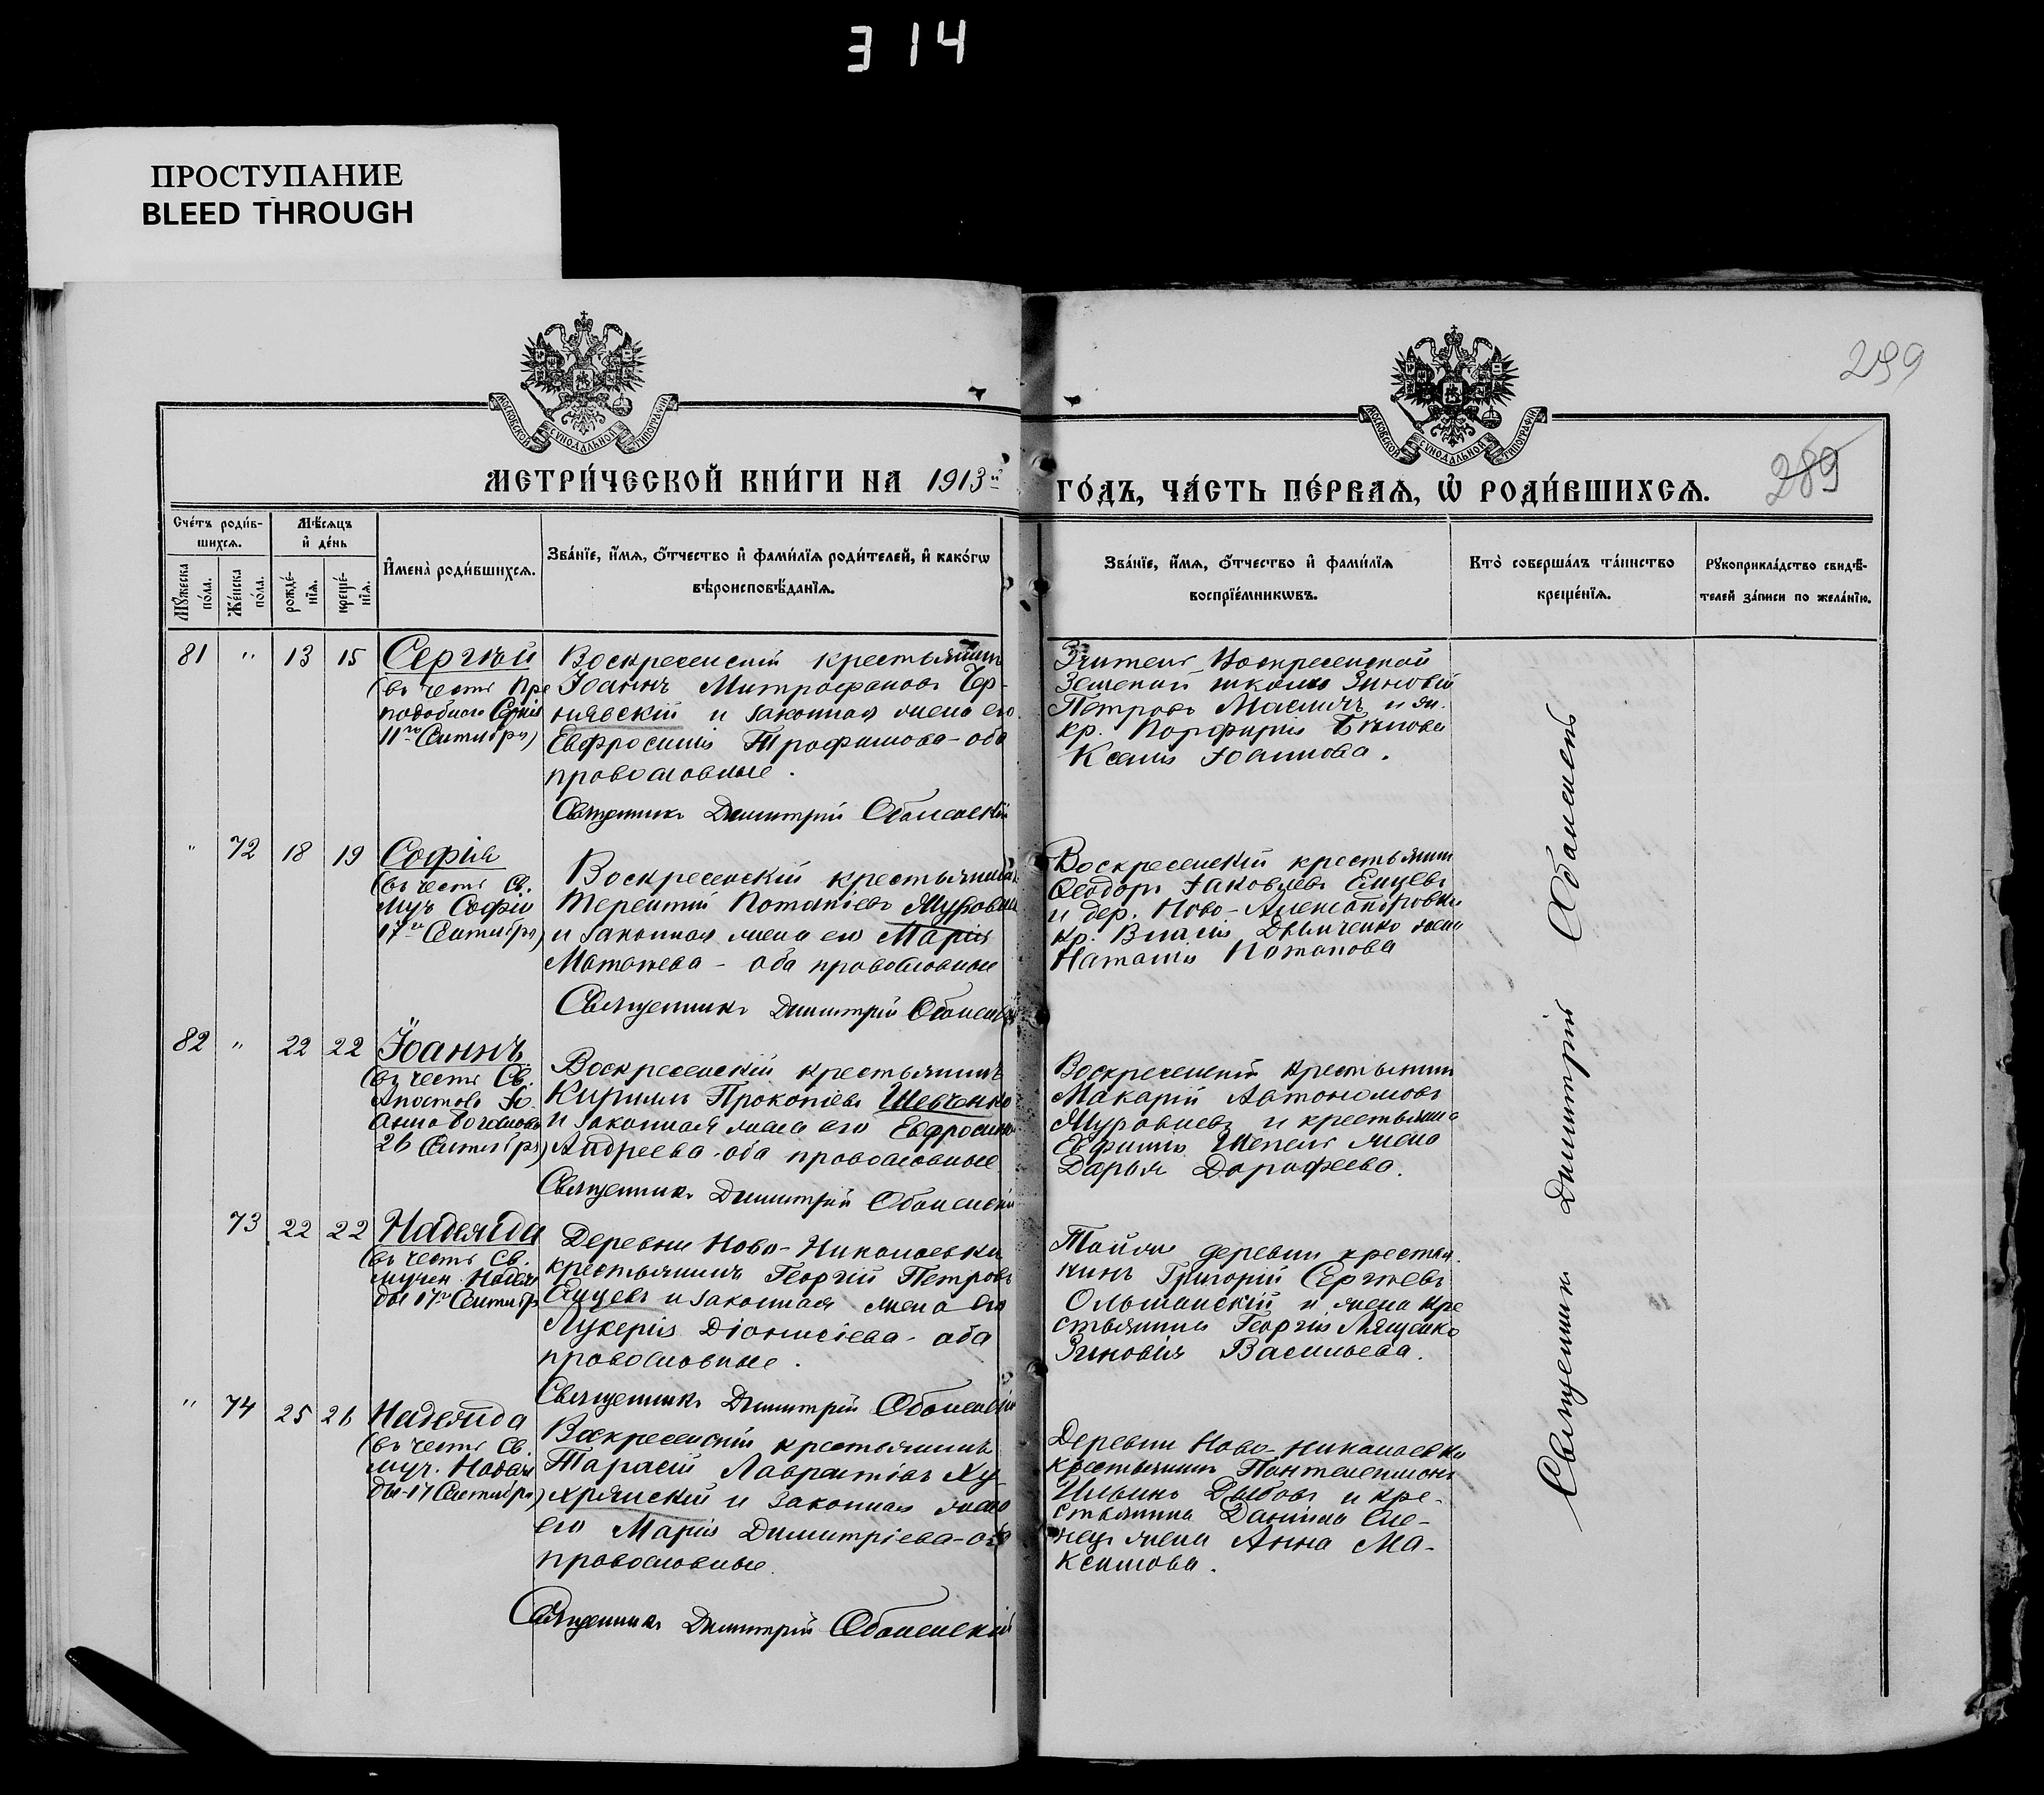 314
ПРОСТУПАНИЕ
BLEED THROUGH
299
МОСКОВСКОЙ СѴНОДАЛЬНОЙ ТИПОГРАФІИ
МОСКОВСКОЙ СѴНОДАЛЬНОЙ ТИПОГРАФІИ
МЕТРИ́ЧЕСКОЙ КНИ́ГИ НА 1913й
ГО́ДЪ, ЧА́СТЬ ПЕ́РВАѦ, Ѡ҆ РОДИ́ВШИХСѦ.
289
Сче́тъ роди́в-
шихсѧ.
Мѣ́сѧцъ
и҆ де́нь
Мꙋ́жеска по́ла.
Же́нска по́ла.
рожде́-
нїѧ.
креще́-
нїѧ.
И҆мена̀ роди́вшихсѧ.
Зва́нїе, и҆́мѧ, ѻ҆́тчество и҆ фами́лїѧ роди́телей, и҆ како́гѡ
вѣроисповѣ́данїѧ.
Зва́нїе, и҆́мѧ, ѻ҆́тчество и҆ фами́лїѧ
воспрїе́мникѡвъ.
Кто̀ соверша́лъ та́инство
креще́нїѧ.
Рꙋкоприкла́дство свидѣ́-
телей за́писи по жела́нїю.
81 " 13 15 Сергѣй
(въ честь Пре
подобнаго Сергія
11го Сентября)
Воскресенскій крестьянинъ
Іоаннъ Митрофановъ Чер-
нявскій и законная жена его
Евфросинія Трофимова - оба
православные.
Священникъ Димитрій Оболенскій
Учитель Воскресенской
Земской школы Зиновій
Петровъ и жн.
кр. Порфирія Бѣлова
Ксенія Іоаннова.
" 72 18 19 Софія
(въ честь Св.
муч Софіи
17го Сентября)
Воскресенскій крестьянинъ
Терентій Потапіевъ
и законная жена его Марія
- оба православные
Священникъ Димитрій Оболенскій
Воскресенскій крестьянинъ
Ѳеодоръ Іаковлевъ Емцевъ
и дер. Ново-Александровки
кр. Власія жена
Наталія Потапова
82 " 22 22 Іоаннъ
(въ честь Св.
Апостола Іо
анна Богослова
26 Сентября)
Воскресенскій крестьянинъ
Кириллъ Прокопіевъ Шевченко
и законная жена его Евфросинія
Андреева - оба православные
Священникъ Димитрій Оболенскій
Воскресенскій крестьянинъ
Макарій Автономовъ
Журавлевъ и крестьянина
Евфимія Шепель жена
Дарья Дорофеева.
73 22 22 Надежда
(въ честь Св.
мучен Надеж
ды 17го Сентябр
Деревни Ново-Николаевки
крестьянинъ Георгій Петровъ
и законная жена его
Лукерія Діонисіева - оба
православные.
Священникъ Димитрій Оболенскій
Той же деревни крестья
нинъ Григорій Сергѣевъ
Ольшанскій и жена кре
стьянина Георгія Лященко
Зиновія Васильева.
" 74 25 26 Надежда
(въ честь Св.
муч. Надеж
ды - 17 Сентября)
Воскресенскій крестьянинъ
Тарасій Лаврентіевъ Ху-
хрянскій и законная жена
его Марія Димитріева - оба
православные.
Священникъ Димитрій Оболенскій
Деревни Ново-Николаевки
крестьянинъ Пантелеимонъ
Ильинъ Дыбовъ и кре-
стьянина Даніила
жена Анна Ма-
ксимова.
Священникъ Димитрій Оболенскій